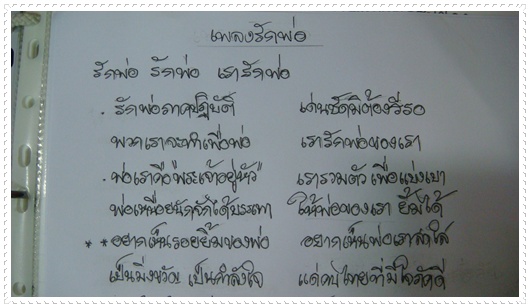 เพลงรักพ่อ
รักพ่อ รักพ่อ เรารักพ่อ
. รักพ่อภาคปฏิบัติ เด่นชัดมิต้องรีรอ
พวกเราจะทำเพื่อพ่อ เรารักพ่อของเรา
. พ่อเราคือ"พระเจ้าอยู่หัว" เรารวมตัว เพื่อแบ่งเบา
พ่อเหนื่อยนักจักได้บรรเทา ให้พ่อของเรา ยิ้มได้
* * อยากเห็นรอยยิ้มของพ่อ อยากเห็นพ่อเราสดใส
เป็นมิ่งขวัญ เป็นกำลังใจ แด่คนไทยที่มีใจภักดี